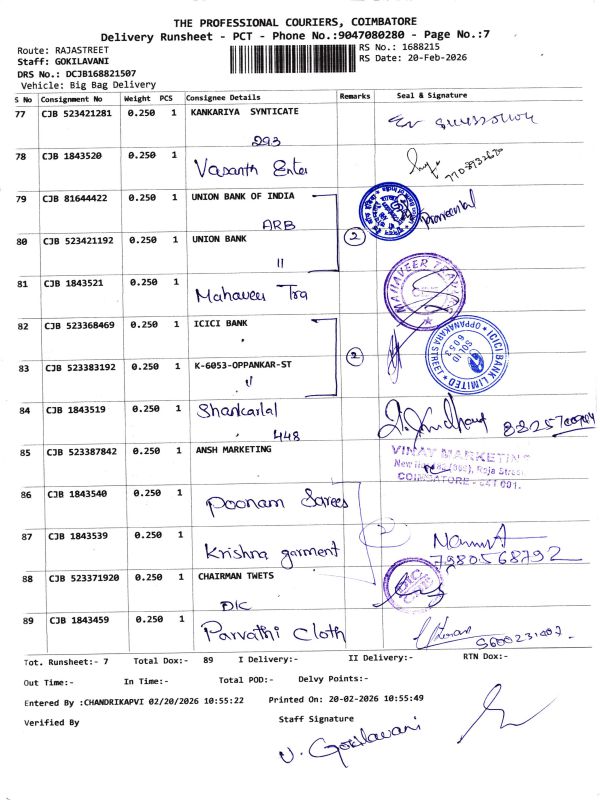 THE PROFESSIONAL COURIERS, COIMBATORE
Delivery Runsheet - PCT - Phone No.:9047080280 - Page No.:7
Route: RAJASTREET
RS No.: 1688215
Staff: GOKILAVANI
RS Date: 20-Feb-2026
DRS No.: DCJB168821507
Vehicle: Big Bag Delivery
S No Consignment No Weight PCS Consignee Details Remarks Seal & Signature
77 CJB 523421281 0.250 1 KANKARIYA SYNTICATE
293
78 CJB 1843520 0.250 1 Vasanth Enter
79 CJB 81644422 0.250 1 UNION BANK OF INDIA
ARB
2
80 CJB 523421192 0.250 1 UNION BANK
11
81 CJB 1843521 0.250 1 Mahaveer Tra
MAHAVEER
82 CJB 523368469 0.250 1 ICICI BANK
2
ICICI BANK LIMITED
OPPANAKARA STREET
SOL ID
6053
83 CJB 523383192 0.250 1 K-6053-OPPANKAR-ST
84 CJB 1843519 0.250 1 Shankarlal
448
85 CJB 523387842 0.250 1 ANSH MARKETING
VINAY MARKETING
Raja Street
COIMBATORE - 641 001.
86 CJB 1843540 0.250 1 Poonam Sarees
87 CJB 1843539 0.250 1 Krishna garment
7980568792
88 CJB 523371920 0.250 1 CHAIRMAN TWETS
DIC
89 CJB 1843459 0.250 1 Parvathi Cloth
Tot. Runsheet:- 7 Total Dox:- 89 I Delivery:- II Delivery:- RTN Dox:-
Out Time:- In Time:- Total POD:- Delvy Points:-
Entered By :CHANDRIKAPVI 02/20/2026 10:55:22 Printed On: 20-02-2026 10:55:49
Verified By Staff Signature
V. Gokilavani